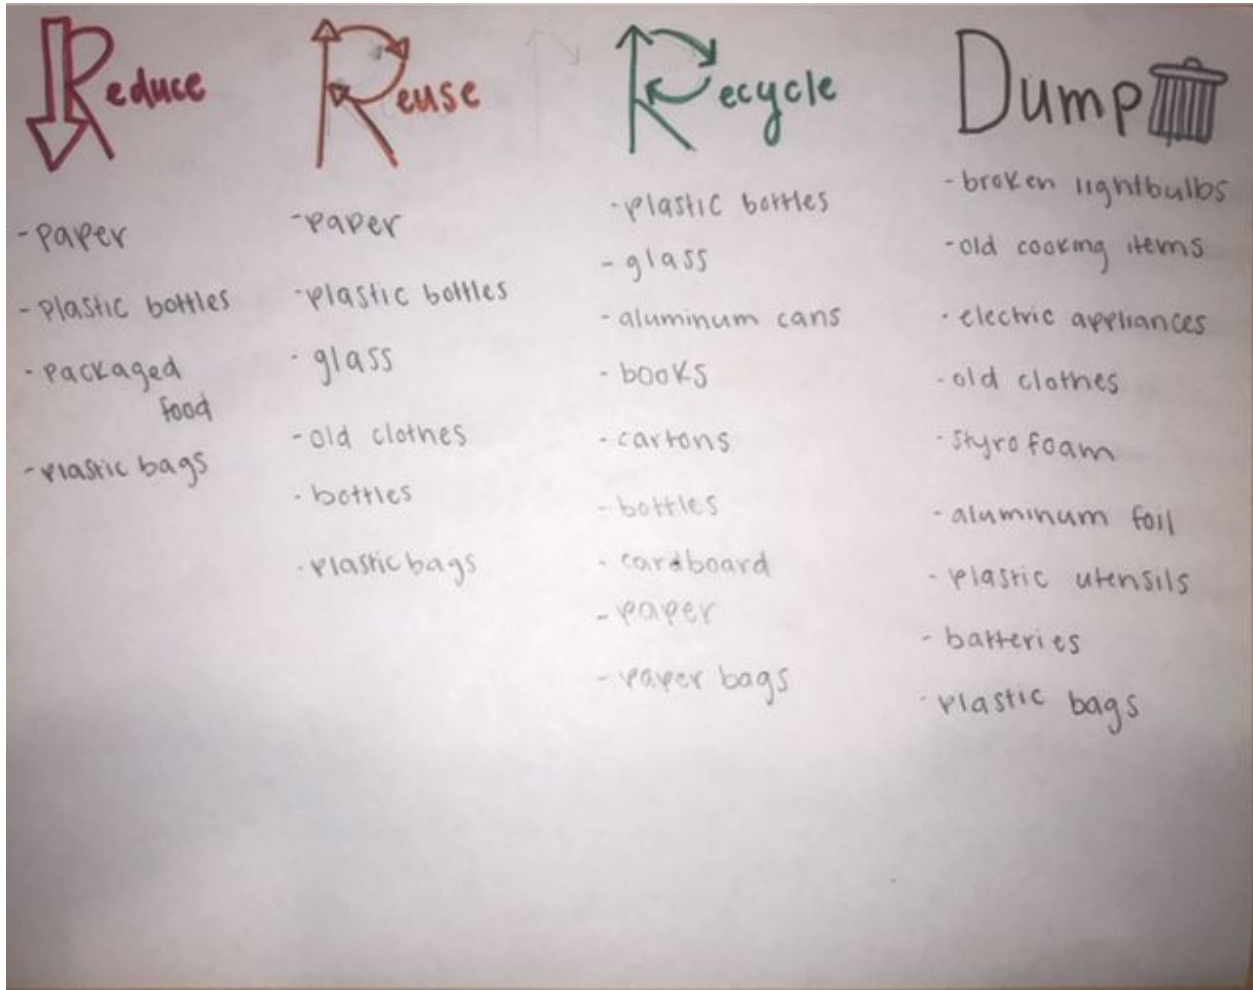 Reduce
- paper
- plastic bottles
- packaged
food
- plastic bags
Reuse
- paper
- plastic bottles
- glass
- old clothes
- bottles
- plastic bags
Recycle
- plastic bottles
- glass
- aluminum cans
- books
- cartons
- bottles
- cardboard
- paper
- paper bags
Dump
- broken lightbulbs
- old cooking items
- electric appliances
- old clothes
- styrofoam
- aluminum foil
- plastic utensils
- batteries
- plastic bags